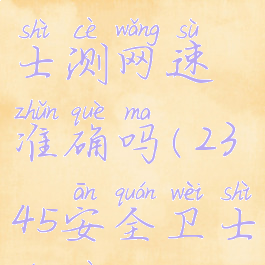 shì cè wǎng sù
士测网速
zhǔn què ma
准确吗(23
ān quán wèi shì
45安全卫士